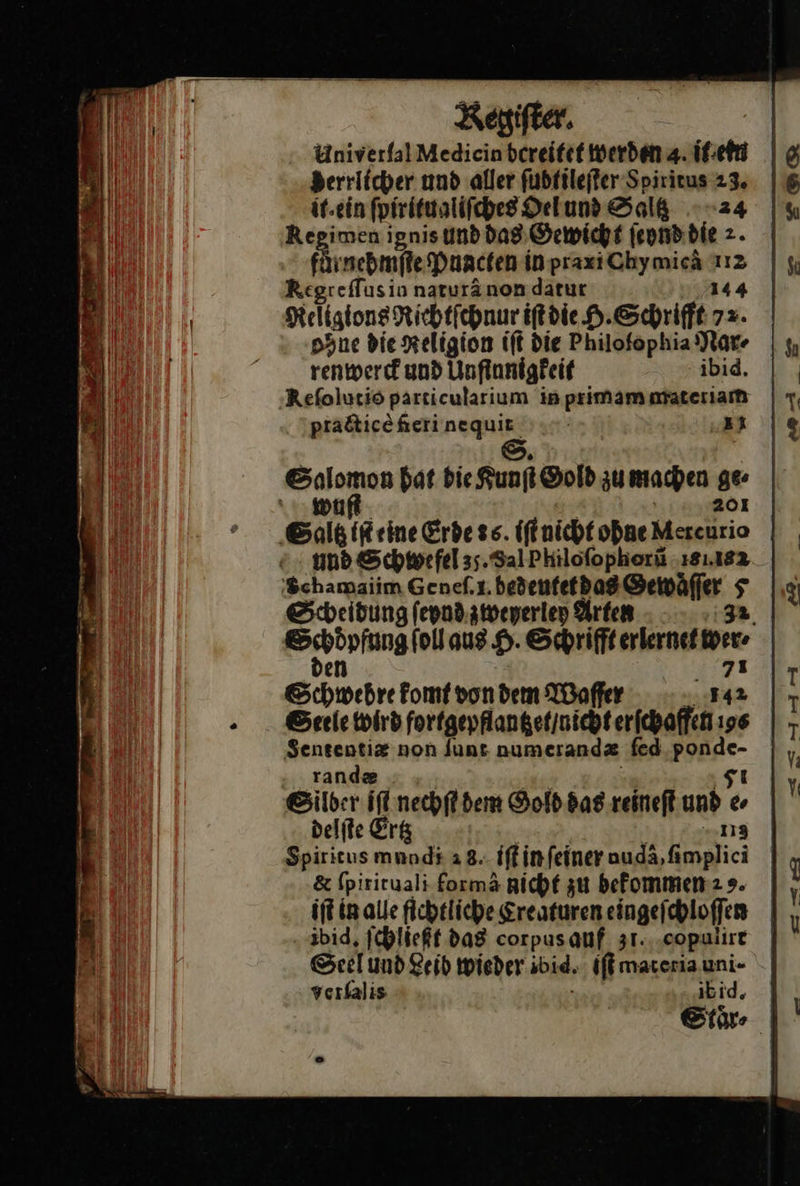 Regiſter.
Univerſal Medicin bereitet werden 4. it. ein
herrlicher und aller ſubtileſter Spiritus 23.
it. ein ſpiritualiſches Oel und Saltz 24
Regimen ignis und das Gewicht ſeynd die 2.
fürnehmſte Puncten in praxi Chymicâ 112
Regreſſus in naturâ non datur 144
Religions Richtſchnur iſt die H. Schrifft 72.
ohne die Religion iſt die Philoſophia Nar⸗
renwerck und Unſinnigkeit ibid.
Reſolutio particularium in primam materiam
practicè fieri nequit
S.
Salomon hat die Kunſt Gold zu machen ge⸗
wuſt 201
Saltz iſt eine Erde 26. iſt nicht ohne Mercurio
und Schwefel 35. Sal Philoſophorũ 181.182
Schamaiim Geneſ. 1. bedeutet das Gewäſſer 5
Scheidung ſeynd zweyerley Arten 32
Schöpfung ſoll aus H. Schrifft erlernet wer⸗
den 71
Schwebre komt von dem Waſſer 142
Seele wird fortgepflantzet/nicht erſchaffen 196
Sententiæ non ſunt numerandæ ſed ponde-
randæ 51
Silber iſt nechſt dem Gold das reineſt und e⸗
delſte Ertz 113
Spiritus mundi 28. iſt in ſeiner nudâ, ſimplici
& ſpirituali formâ nicht zu bekommen 29.
iſt in alle ſichtliche Creaturen eingeſchloſſen
ibid. ſchließt das corpus auf 31. copulirt
Seel und Leib wieder ibid. iſt materia uni-
verſalis ibid.
Stär⸗